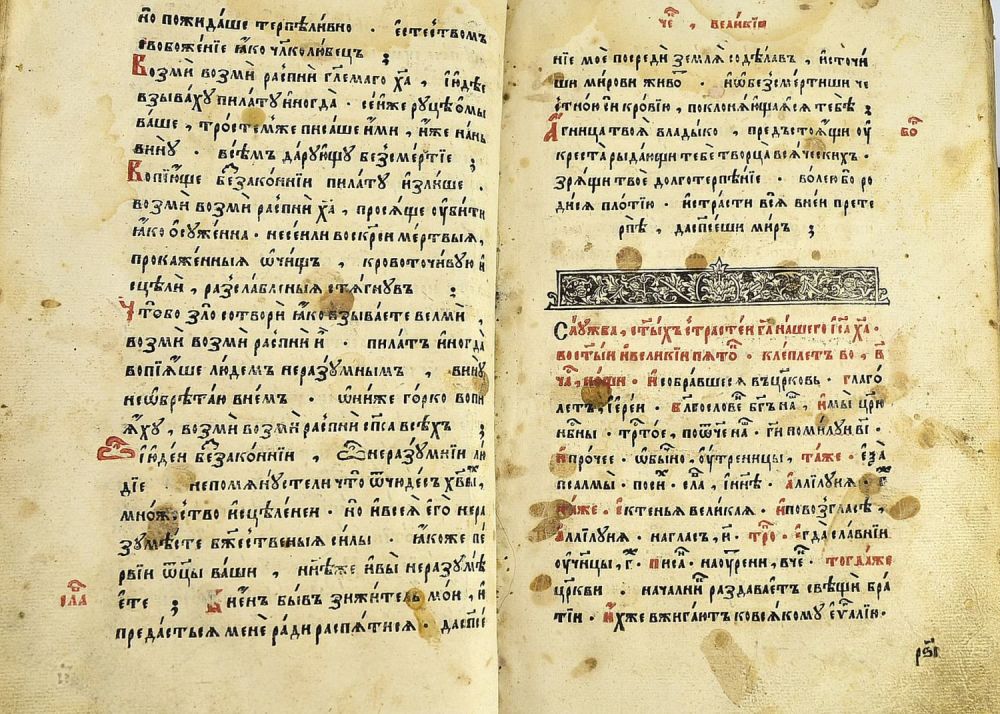 но пожидаше терпѣливно · є҆стествомъ
свобоженїе ꙗ҆ко чл҃колюбецъ
Возмѝ возмѝ распнѝ гл҃емаго ха҃ , і҆юдѣє
взываху пилату и҆ногда · сеи́же руцѣ ѻ҆мы
ваше , тростемже писаше и҆ми , и҆же нань
вину · всѣмъ дарующу безсмертїе ;
Вопїюще беззаконнїи пилату и҆злише ·
возмѝ возмѝ распнѝ ха҃ , просѧще ѹ҆бити
ꙗ҆ко ѻ҆суженна · несеили воскреси мертвыѧ ,
прокаженныѧ ѡ҆чищъ , кровоточивую и҆
сцѣли , разслабленыѧ стѧгнувъ ;
Чтобо зло сотвори ꙗ҆ко взываете велми ,
возмѝ возмѝ распнѝ и҆ · пилатъ и҆ногда
вопїѧше людемъ неразумнымъ , вину
неѡ҆брѣтаю внемъ · ѡ҆ниже горко вопи
ꙗ҆ху , возмѝ возмѝ распнѝ сп҃са всѣхъ ;
Ѽ і҆юдеи беззаконнїи , ѽ неразумнїи лю
дїе · непомѧнустели что ѿчюдесъ хв҃ы ,
множество и҆сцѣленеи · но и҆всеѧ є҆го нера
зумѣсте бж҃ественыѧ силы · ꙗ҆коже пе
рвїи ѿцы ваши , нн҃ѣже и҆вы неразумѣ
є҆те ; Книенъ бывъ зижитель мои , и҆
предастьсѧ мене ради распѧтисѧ · даспсе
є҆ла
че҃ , великїи
нїе мое посреди землѧ содѣлавъ , источи
ши мирови животъ · и҆ѡ҆безсмертиши че
стною си кровїю , поклонѧющаѧсѧ тебѣ ;
Агница твоѧ владыко , предъстоѧщи ѹ҆
бо
креста рыдающи тебе творца всѧческихъ ·
зрѧщи твое долготерпѣнїе · волею бо ро
дисѧ плотїю · и҆страсти всѧ вней прете
рпѣ , даспсеши миръ ;
Служба , ст҃ыхъ страстеи га҃ нашего і҆са ха҃
во ст҃ыи и҆великїи пѧто · клеплетъ во , в҃
ча , нощи · и҆собравшесѧ въ црковь · глаго
летъ , і҆ереи · блгословѐ бг҃ъ на , и҆мы цр҃ю
нб҃ны · трт҃ое , поѡ҆ч҃е на · гпи помилуи в҃і ·
и҆прочее · ѡ҆бычно , ѹ҆треницы , таже · є҆ѯа
псалмы · посихъ · є҆ла , і҆ннѣ · аллилуиа · г҃
таже · є҆ктеньѧ великаѧ · и҆повозгласѣ ,
аллилуиа · нагласъ , и҃ · тро · є҆гда славнїи
ѹ҆ч҃ницы , г҃ · писа · наоуренїи , вче · тогдаже
цркви · началнїи раздаваетъ свѣщи бра
тїи · и҆хже вжигаютъ ковсѧкому є҆ѵ҃алїю ·